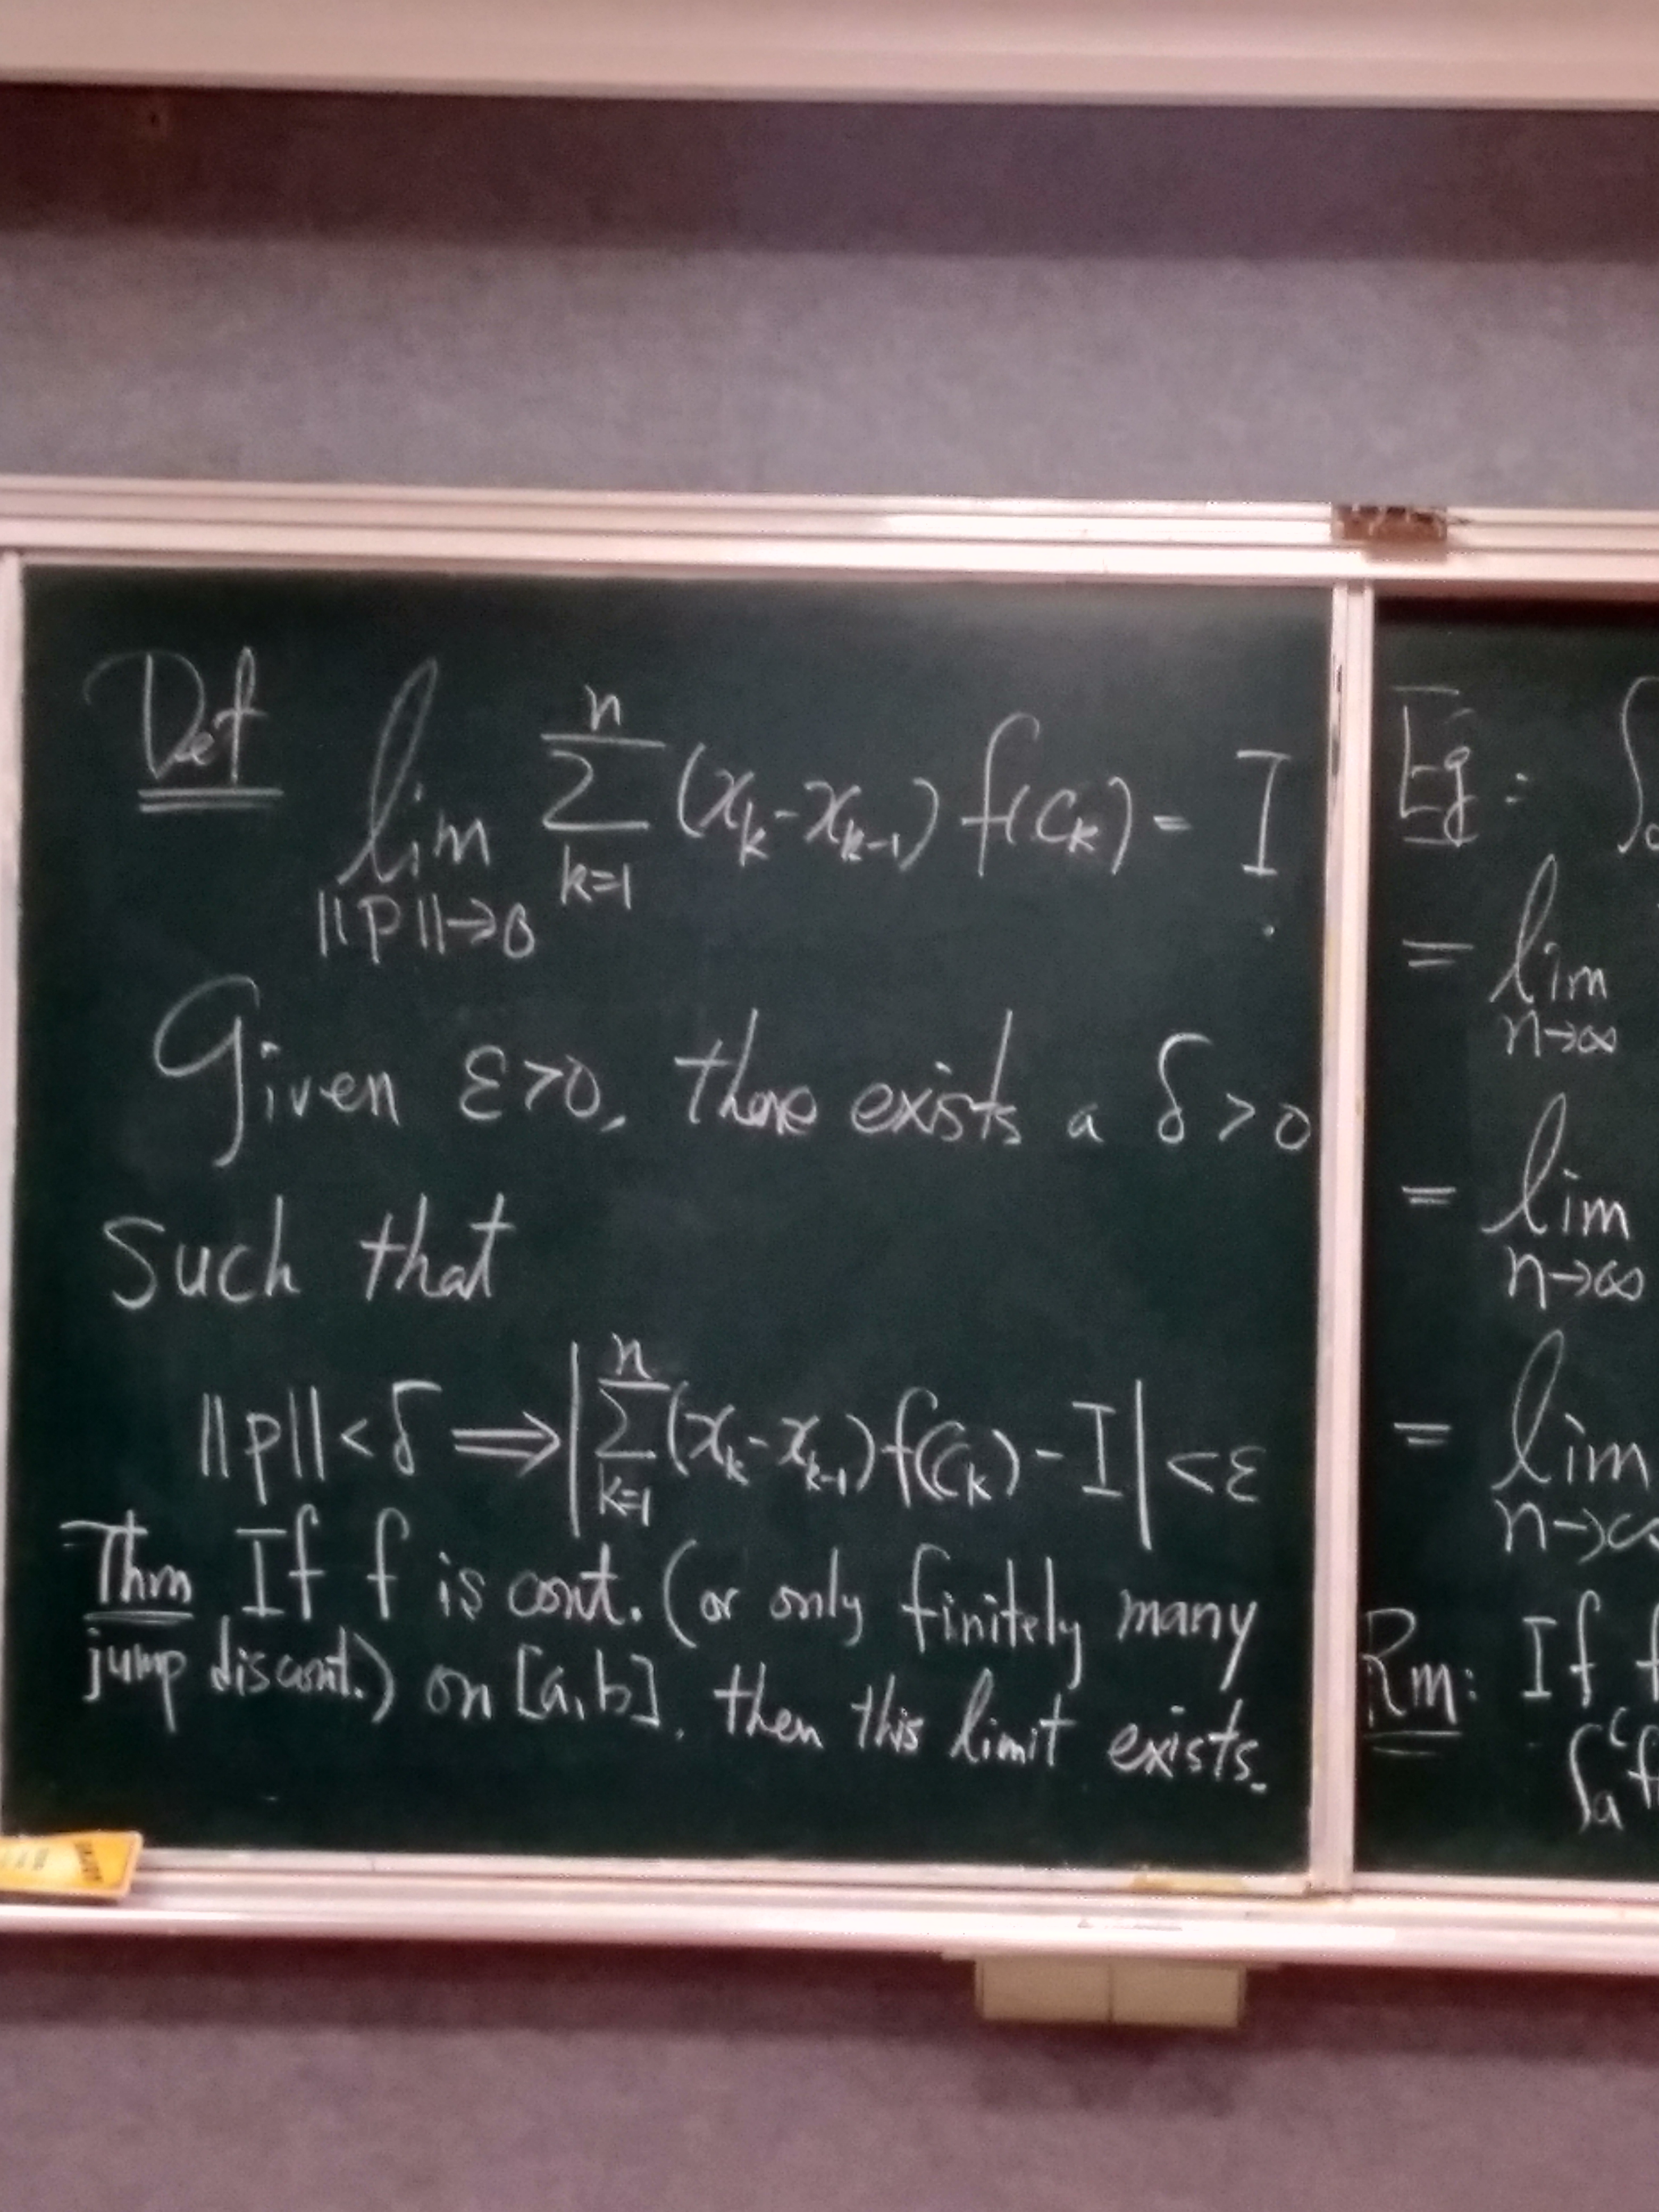 Def lim ∑ (x_k - x_{k-1}) f(c_k) = I
n
k=1
||P||→0
Given ε>0, there exists a δ>0
Such that
||P||<δ ⟹ | ∑ (x_k - x_{k-1}) f(c_k) - I | < ε
n
k=1
Thm If f is cont. (or only finitely many
jump discont.) on [a,b], then this limit exists.
Eg: ∫
= lim
n→∞
= lim
n→∞
= lim
n→∞
Rm: If f
∫_a^c f